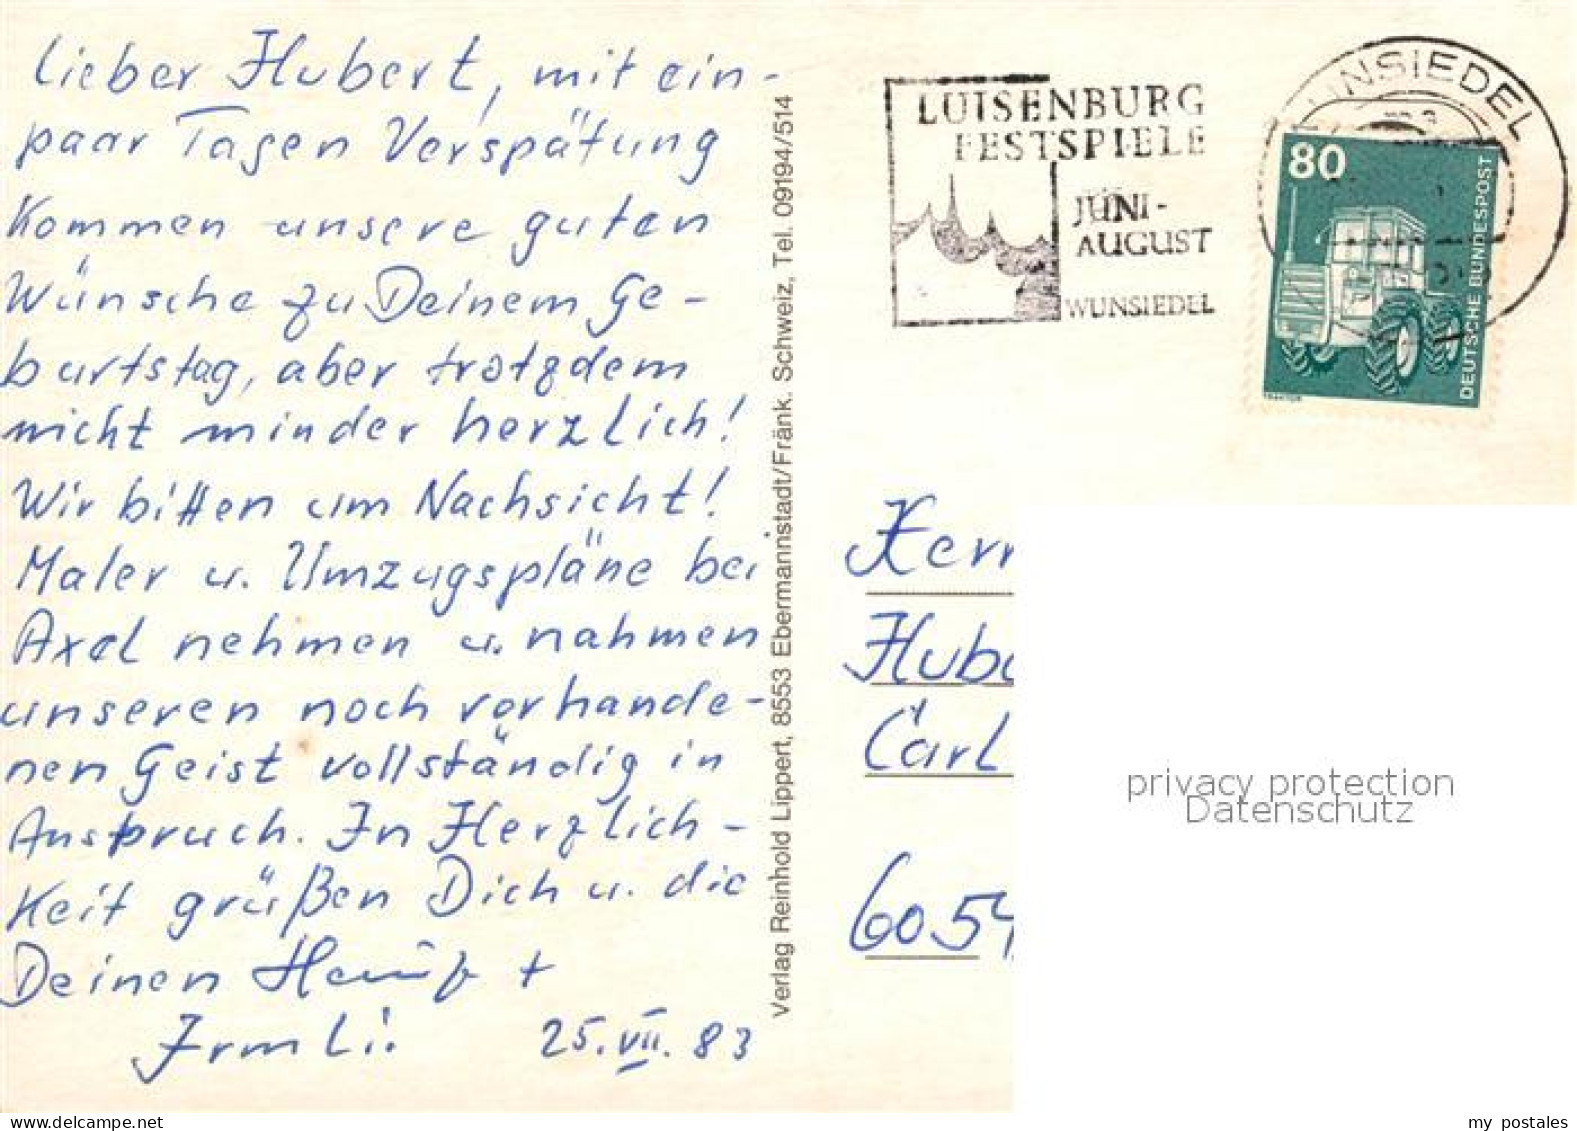 lieber Hubert, mit ein-
paar Tagen Verspätung
Kommen unsere guten
Wünsche zu Deinem Ge-
burtstag, aber trotzdem
nicht minder herzlich!
Wir bitten um Nachsicht!
Maler u. Umzugspläne bei
Axel nehmen u. nahmen
unseren noch vorhande-
nen Geist vollständig in
Anspruch. In Herzlich-
keit grüßen Dich u. die
Deinen +
Irmli
25.VII.83
Verlag Reinhold Lippert, 8553 Ebermannstadt/Fränk. Schweiz, Tel. 09194/514
LUISENBURG
FESTSPIELE
JUNI-
AUGUST
WUNSIEDEL
UNSIEDEL
80
DEUTSCHE BUNDESPOST
TRAKTOR
Herr
Hube
Carl
6054
privacy protection
Datenschutz
delcampe.net
my postales